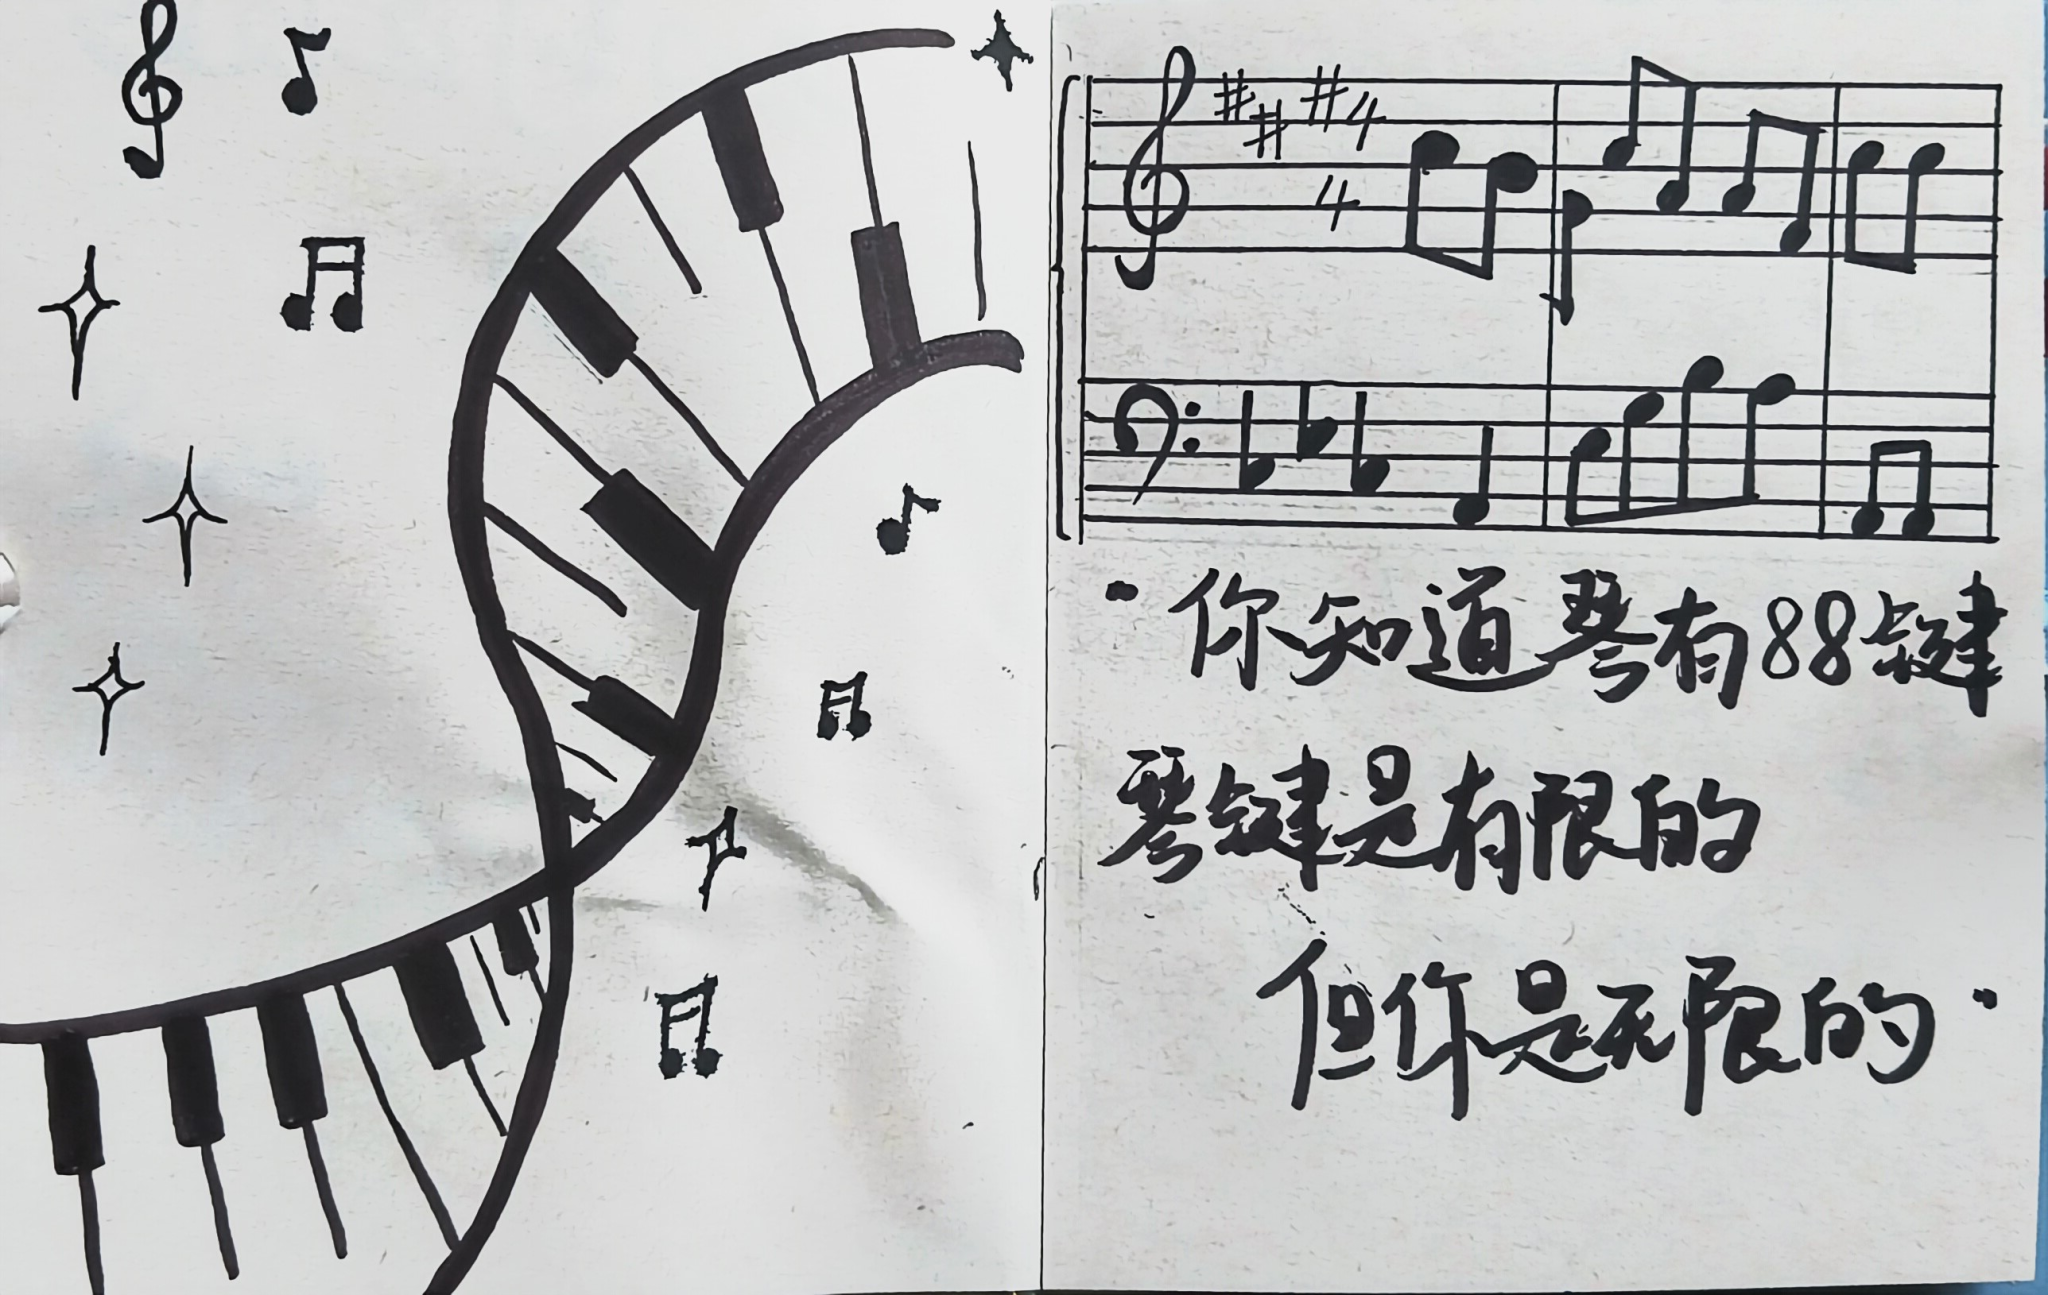 4
4
"你知道琴有88个键
琴键是有限的
但你是无限的"